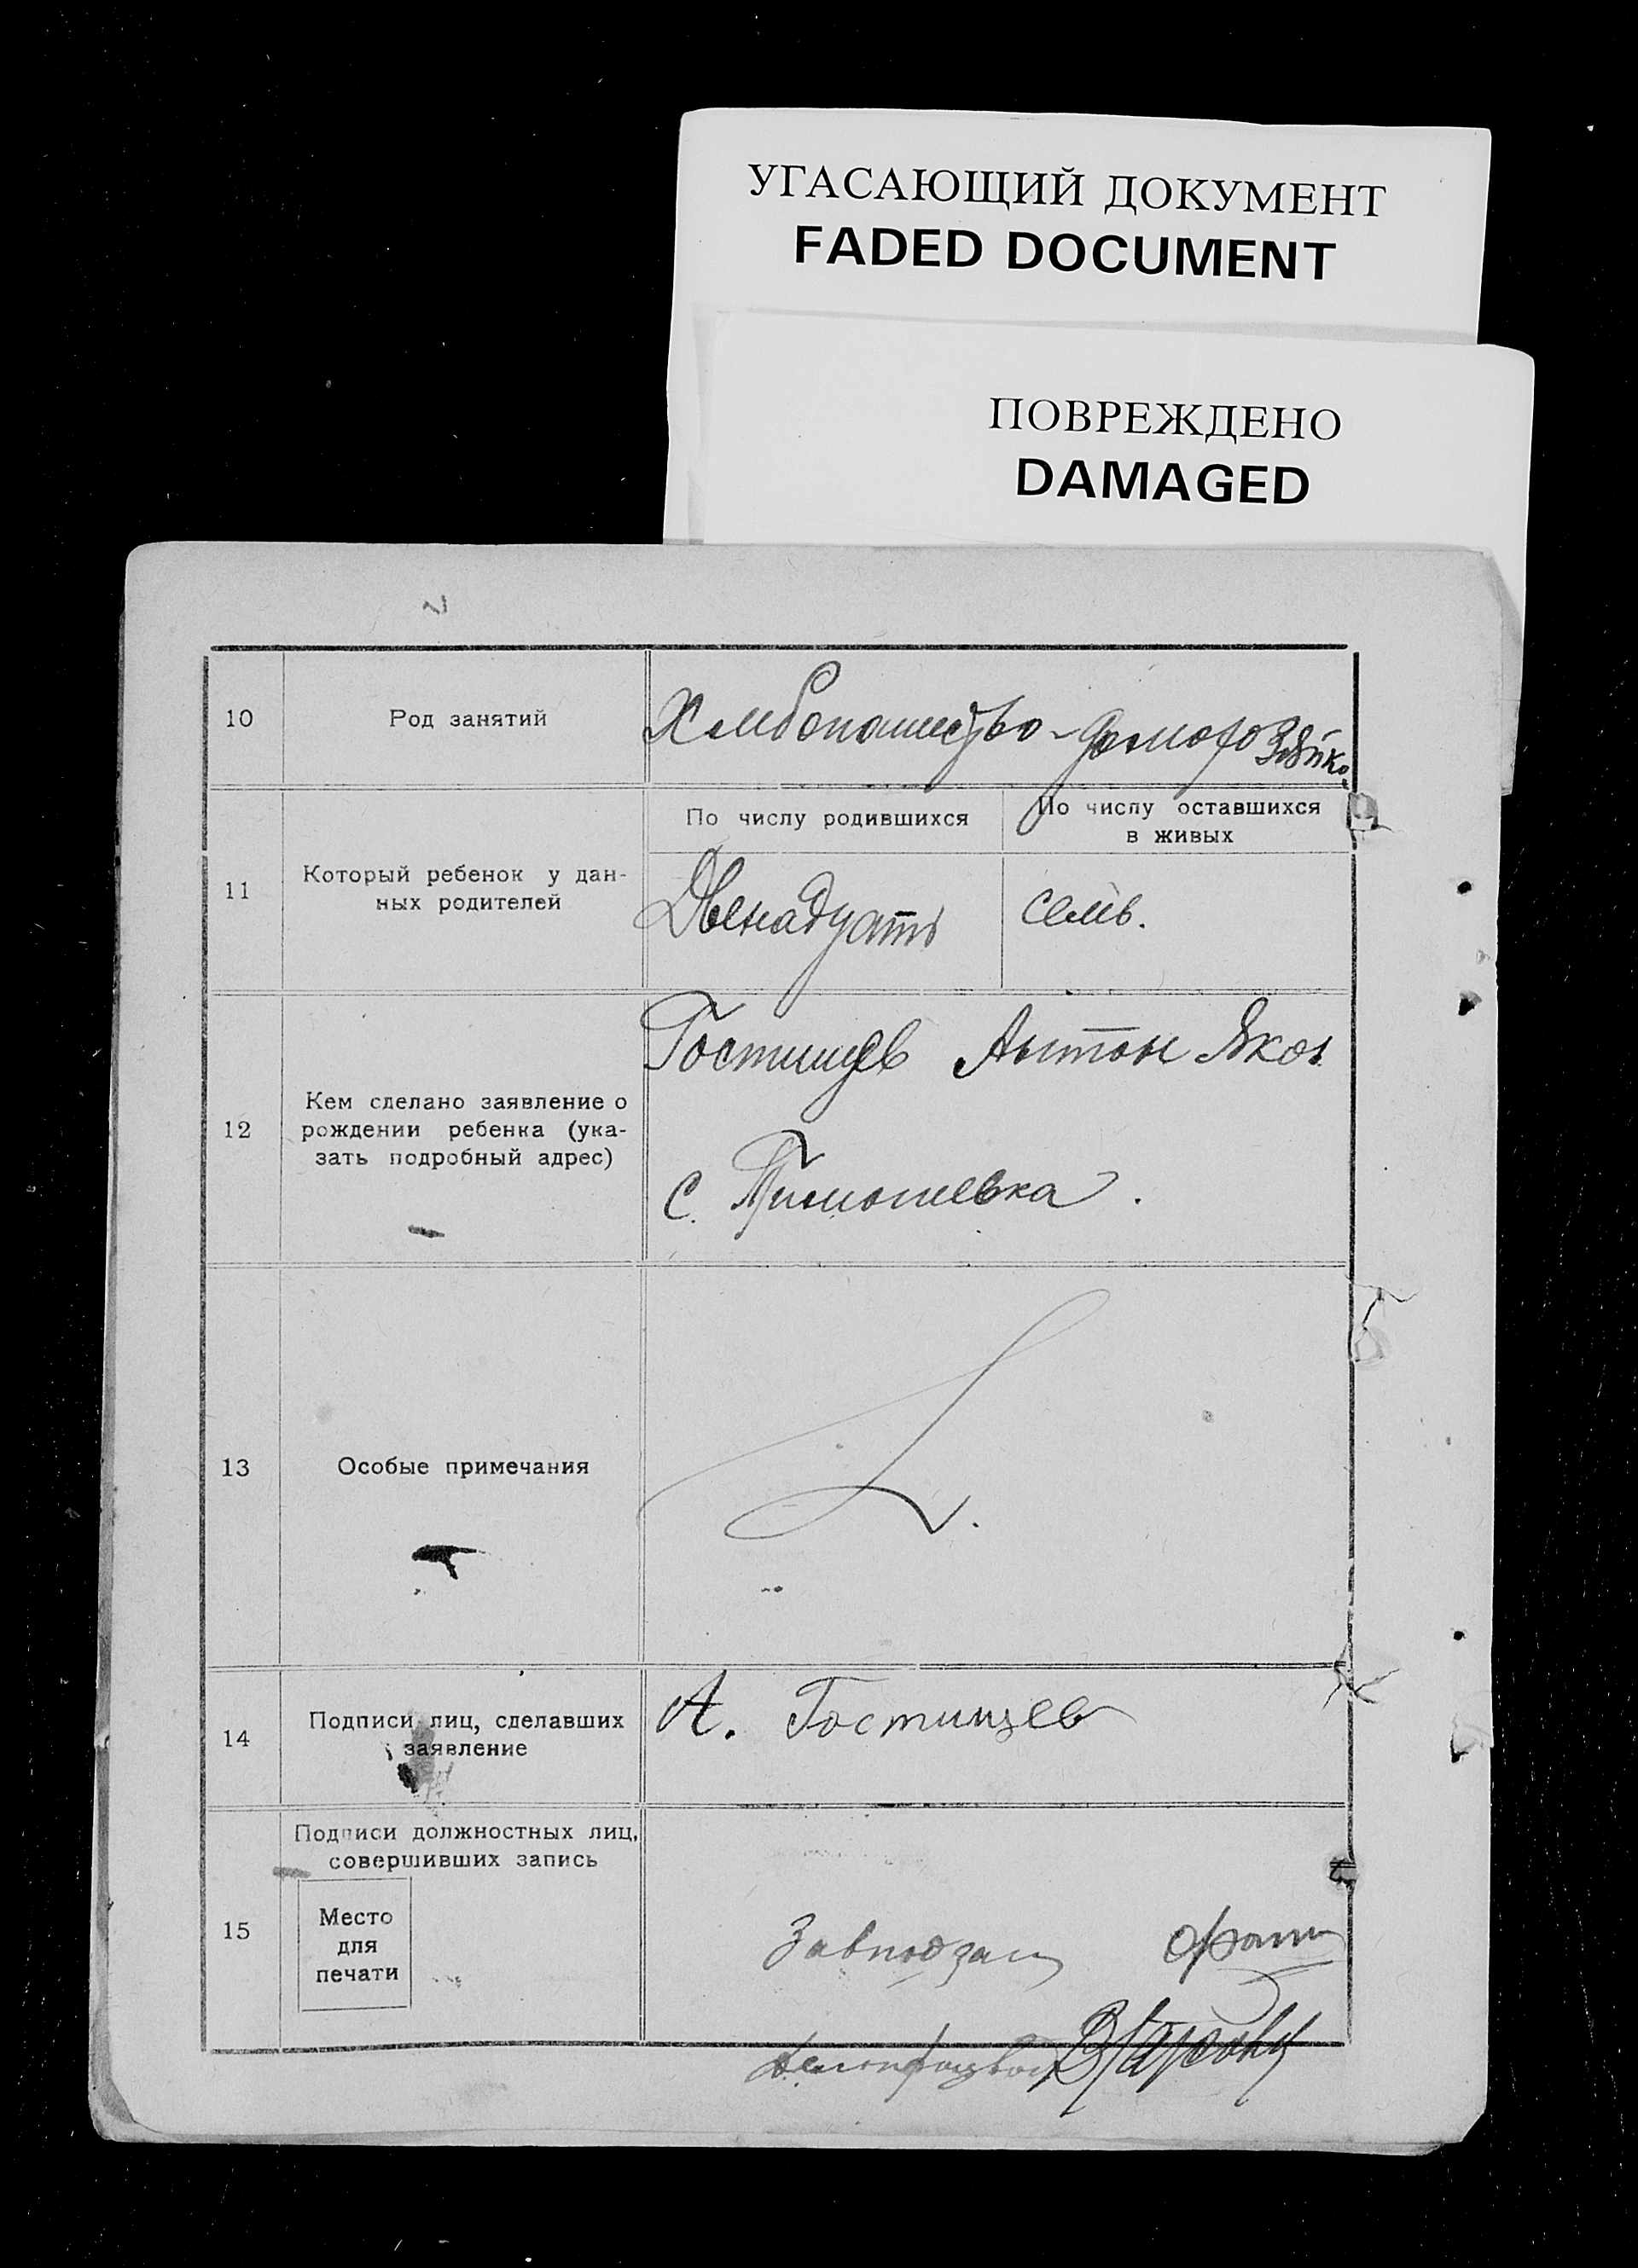 УГАСАЮЩИЙ ДОКУМЕНТ
FADED DOCUMENT
ПОВРЕЖДЕНО
DAMAGED
10
Род занятий
Хлебопашество - домохозяйка
11
Который ребенок у дан-
ных родителей
По числу родившихся
По числу оставшихся
в живых
Двенадцать
семь.
12
Кем сделано заявление о
рождении ребенка (ука-
зать подробный адрес)
Гостищев Антон Яков
с. Тимошевка.
13
Особые примечания
14
Подписи лиц, сделавших
заявление
А. Гостищев
15
Подписи должностных лиц,
совершивших запись
Место
для
печати
Завподзаг